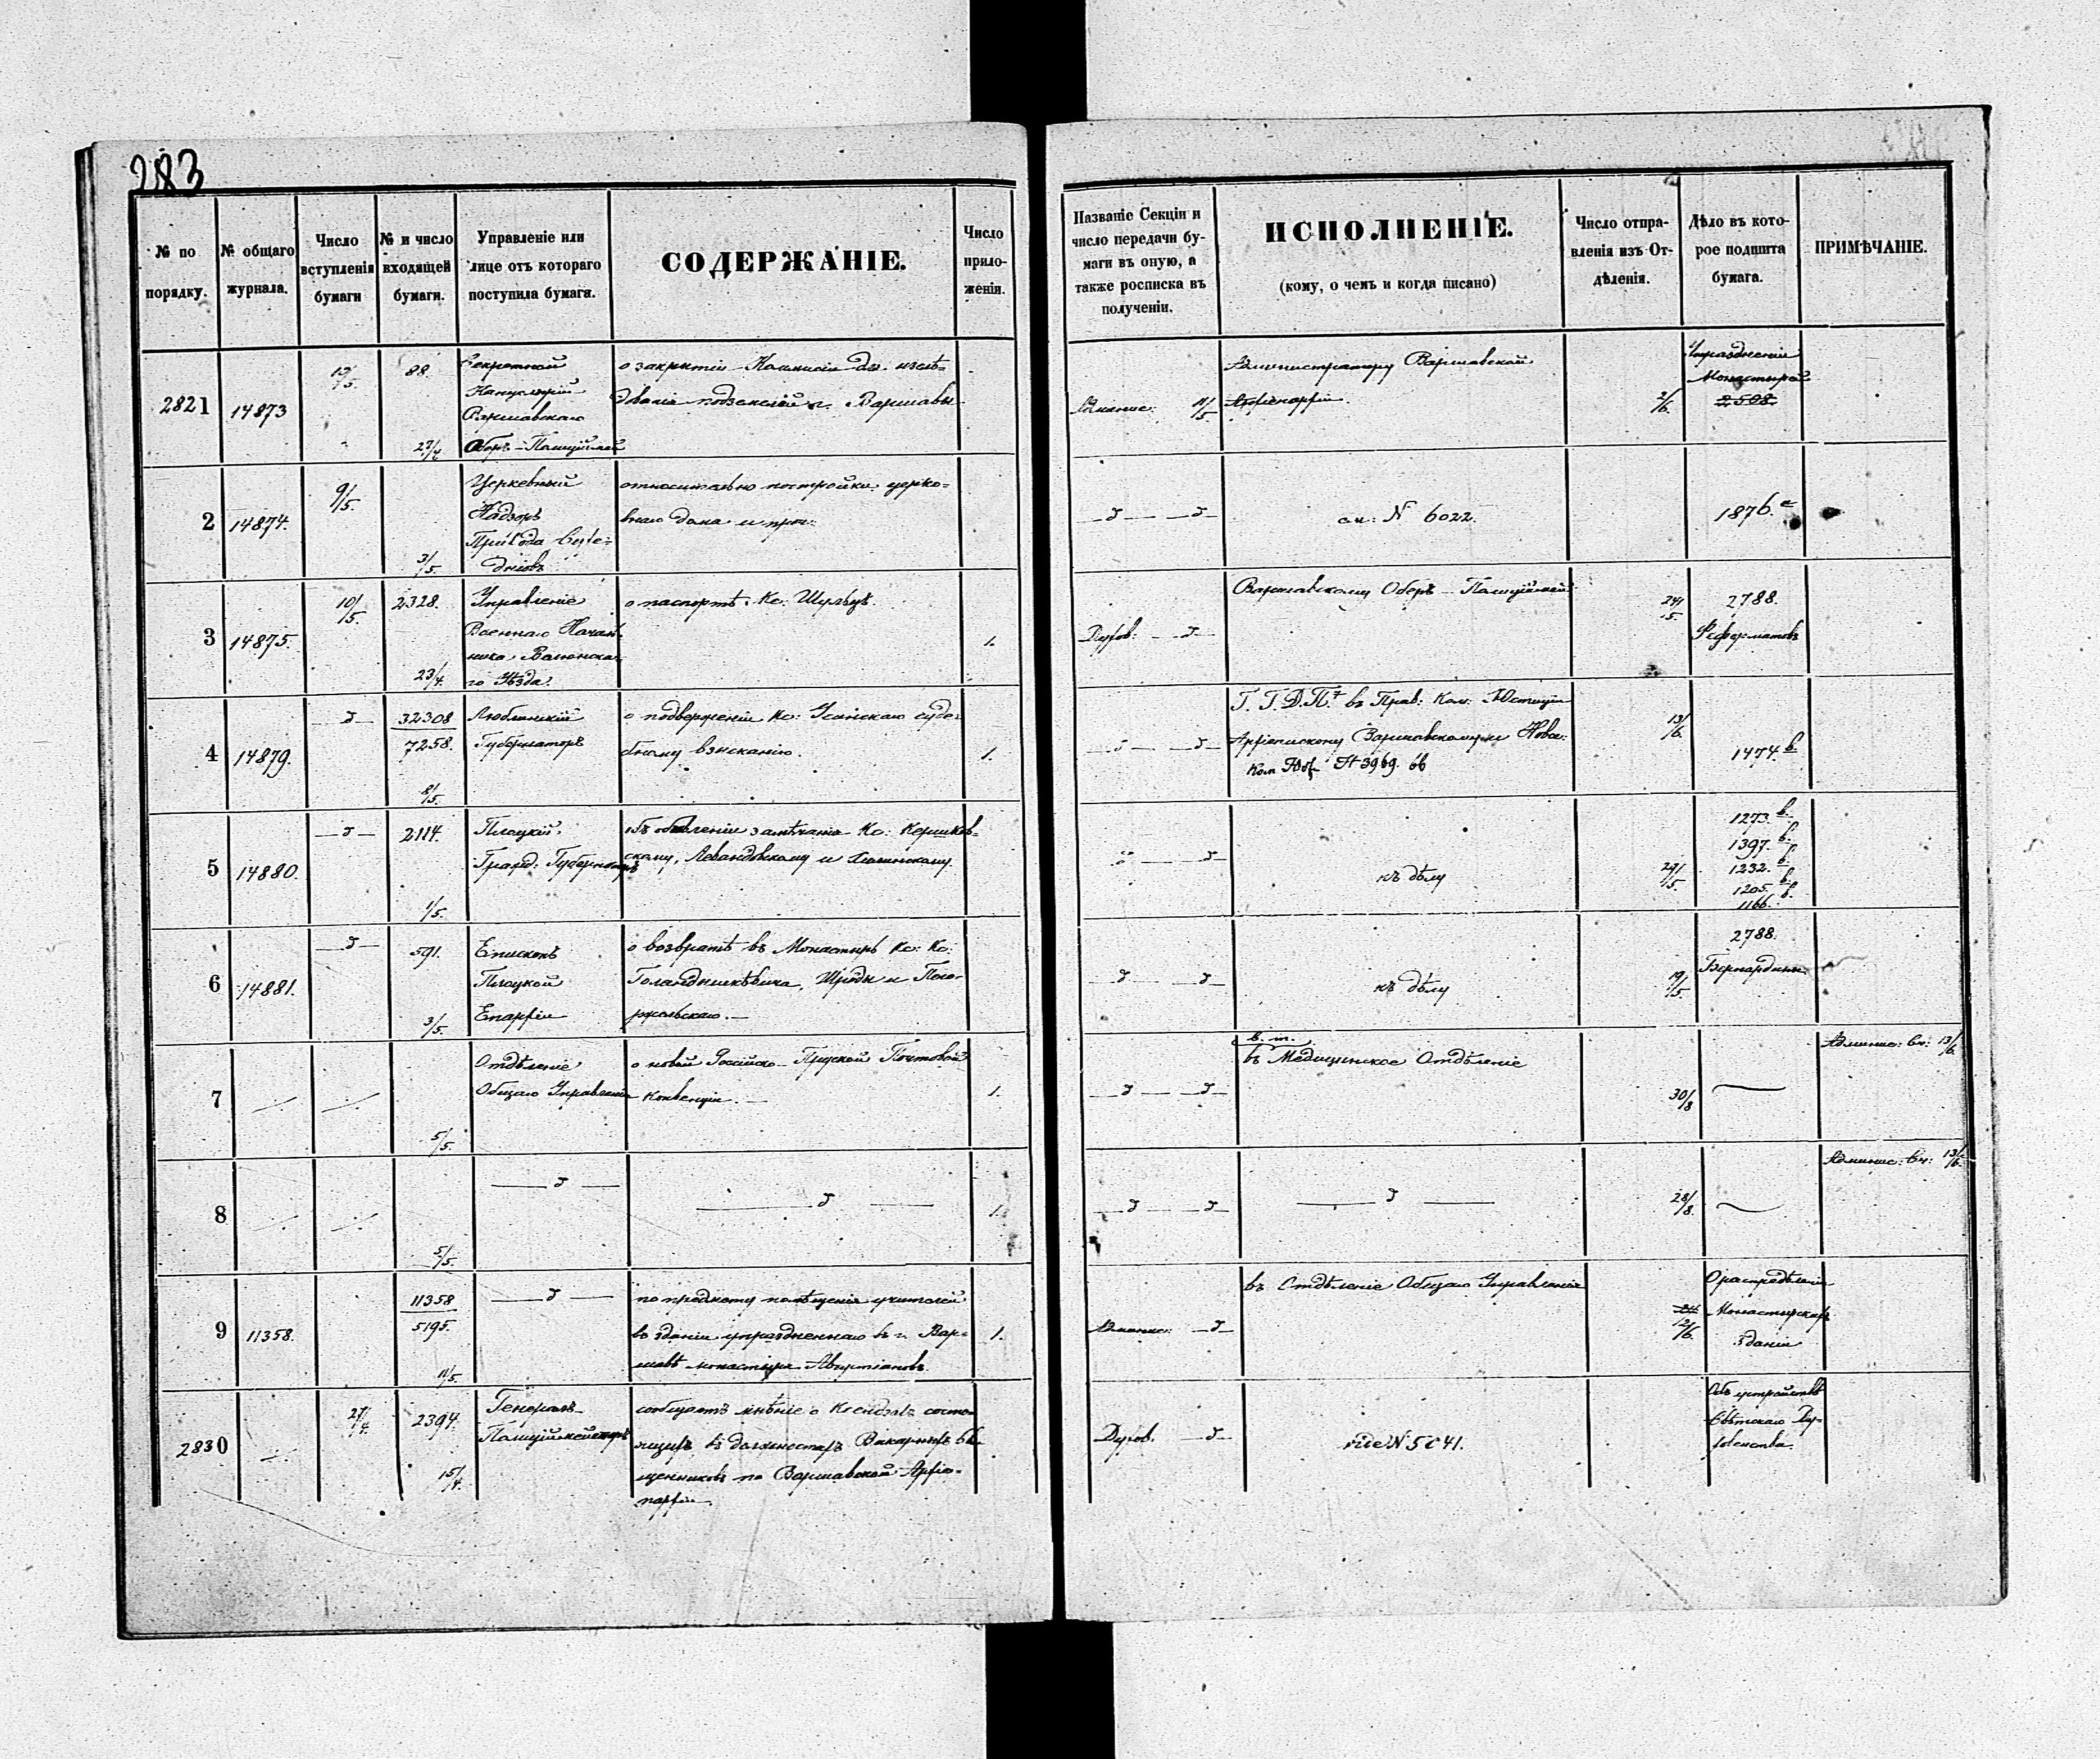 283
№ по порядку.
№ общаго журнала.
Число вступленія бумаги
№ и число входящей бумаги.
Управленіе или лице отъ котораго поступила бумага.
СОДЕРЖАНІЕ.
Число приложеній.
Названіе Секціи и число передачи бумаги въ оную, а также росписка въ полученіи.
ИСПОЛНЕНІЕ.
(кому, о чемъ и когда писано)
Число отправленія изъ Отдѣленія.
Дѣло въ которое подшита бумага.
ПРИМѢЧАНІЕ.
2821
14873
88.
27/4
Секретной
Канцелярій
Варшавскаго
Оберъ-Полиціймей
о закрытіи Коммисіи для изслѣ=
дованія подземелій г. Варшавы.
11/5
Администратору Варшавской
Архіепархіи.
2/6.
Упраздненіи
Монастырей
2508
2
14874.
9/5.
3/5.
Церковный
Надзоръ
Прихода
относительно постройки церко=
внаго дома и проч:
д д
см: N 6022.
1876.
3
14875.
10/5.
2328.
23/4.
Управленіе
Военнаго Началь
ника Велюнска
го Уѣзда.
о паспортѣ Кс: Шульцъ.
1.
Духов: д
Варшавскому Оберъ-Полиціймей
24/5.
2788.
Реформатовъ
4
14879.
д
32308
7258.
8/5.
Люблинскій
Губернаторъ
о подверженіи Кс: Усинскаго суде=
бному взысканію.
1.
д д
Г. Г. Д. П. въ Прав: Ком: Юстиціи
Архіепископу Варшавскому и Ново:
N 3969. 66
13/6.
1474. в.
5
14880.
д
2114.
1/5.
Плоцкій
Гражд: Губернаторъ
объ объявленіи замѣчанія Кс: Кершков=
скому, Левандовскому и
д д
къ дѣлу
24/5.
1273. в.
1397. в.
1232. в.
1205. в.
1166. в.
6
14881.
д
591.
3/5.
Епископъ
Плоцкой
Епархіи
о возвратѣ въ Монастырь Кс: Кс:
Голандышкѣвича, Шроды и Пого=
ржельскаго.
д д
къ дѣлу
19/5.
2788.
Бернардины
7
5/5.
Отдѣленіе
Общаго Управленія
о новой Россійско-Прусской Почтовой
Конвенціи.
1.
д д
в. т.
въ Медицинское Отдѣленіе
30/8
Админис: Сч: 13/6.
8
5/5.
д
д
1.
д д
д
28/8.
Админис: Сч: 13/6.
9
11358.
11358
5195.
11/5.
д
по предмету помѣщенія учителей
въ зданіи упраздненнаго въ г. Вар=
шавѣ монастыря Августіановъ.
1.
Админис: д
въ Отдѣленіе Общаго Управленія
12/6.
О распредѣленіи
Монастырскихъ
зданій
2830
27/4.
2394.
15/4.
Генералъ-
Полиціймейстеръ
сообщаетъ мнѣніе о Ксендзахъ состо=
ящихъ въ должностяхъ Викарныхъ Свя
щенниковъ по Варшавской Архіе=
пархіи.
Духов. д
vide N 5041.
Объ устройствѣ
Свѣтскаго Ду=
ховенства.